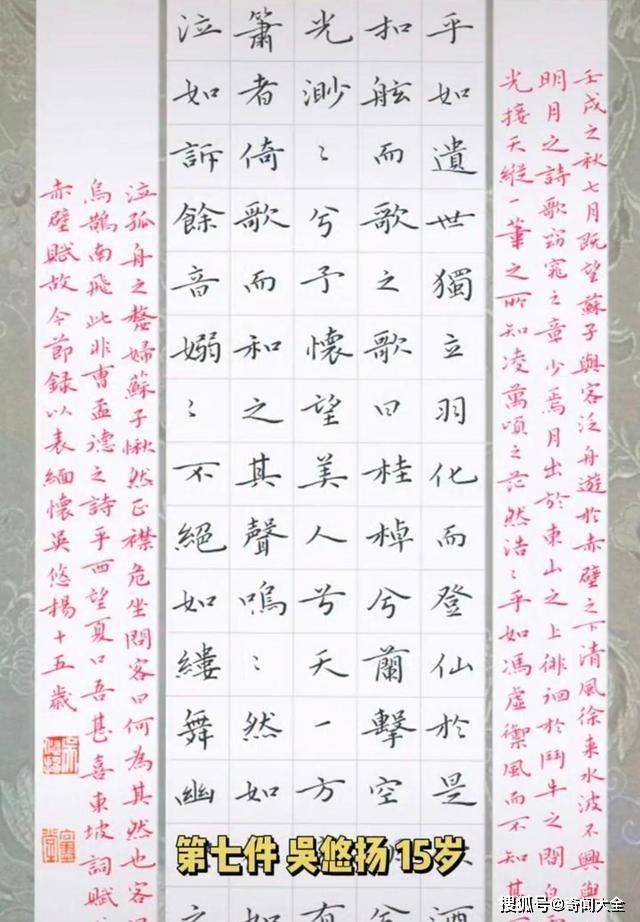 壬戌之秋七月既望蘇子與客泛舟遊於赤壁之下清風徐来水波不興
明月之詩歌窈窕之章少焉月出於東山之上徘徊於鬥牛之間白
光接天縱一葦之所知凌萬頃之茫然浩〻乎如馮虛禦風而不知其
乎如遺世獨立羽化而登仙於是
扣舷而歌之歌曰桂棹兮蘭擊空
光渺〻兮予懷望美人兮天一方
簫者倚歌而和之其聲嗚〻然如
泣如訴餘音嫋〻不絕如縷舞幽
泣孤舟之嫠婦蘇子愀然正襟危坐問客曰何為其然也客
烏鵲南飛此非曹孟德之詩乎西望夏口吾甚喜東坡詞賦
赤壁賦故今節録以表緬懷吳悠揚十五歲
第七件 吳悠扬 15岁
搜狐号@奇闻大全